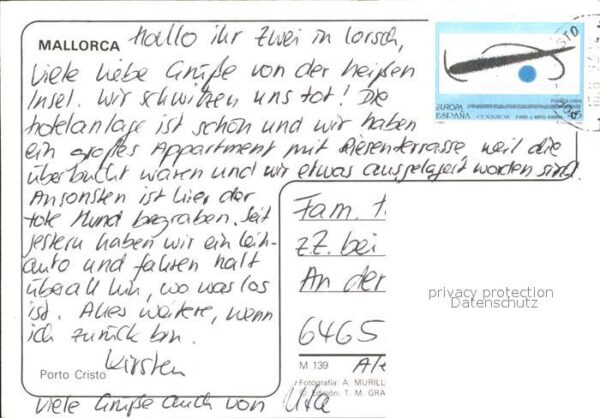 MALLORCA
Hallo ihr Zwei in Lorsch,
viele liebe Grüße von der heißen
Insel. Wir schwitzen uns tot! Die
Hotelanlage ist schön und wir haben
ein großes Appartment mit Riesenterrasse weil die
überbucht waren und wir etwas ausgelagert worden sind.
Ansonsten ist hier der
tote Hund begraben. Seit
gestern haben wir ein Leih-
auto und fahren halt
überall hin, wo was los
ist. Alles weitere, wenn
ich zurück bin.
Kirsten
Porto Cristo
viele Grüße auch von Uta
EUROPA
ESPAÑA
Fam.
zZ. bei
An der
6465
M 139
Fotografía: A. MURILL
© Edición: T. M. GRA
privacy protection
Datenschutz